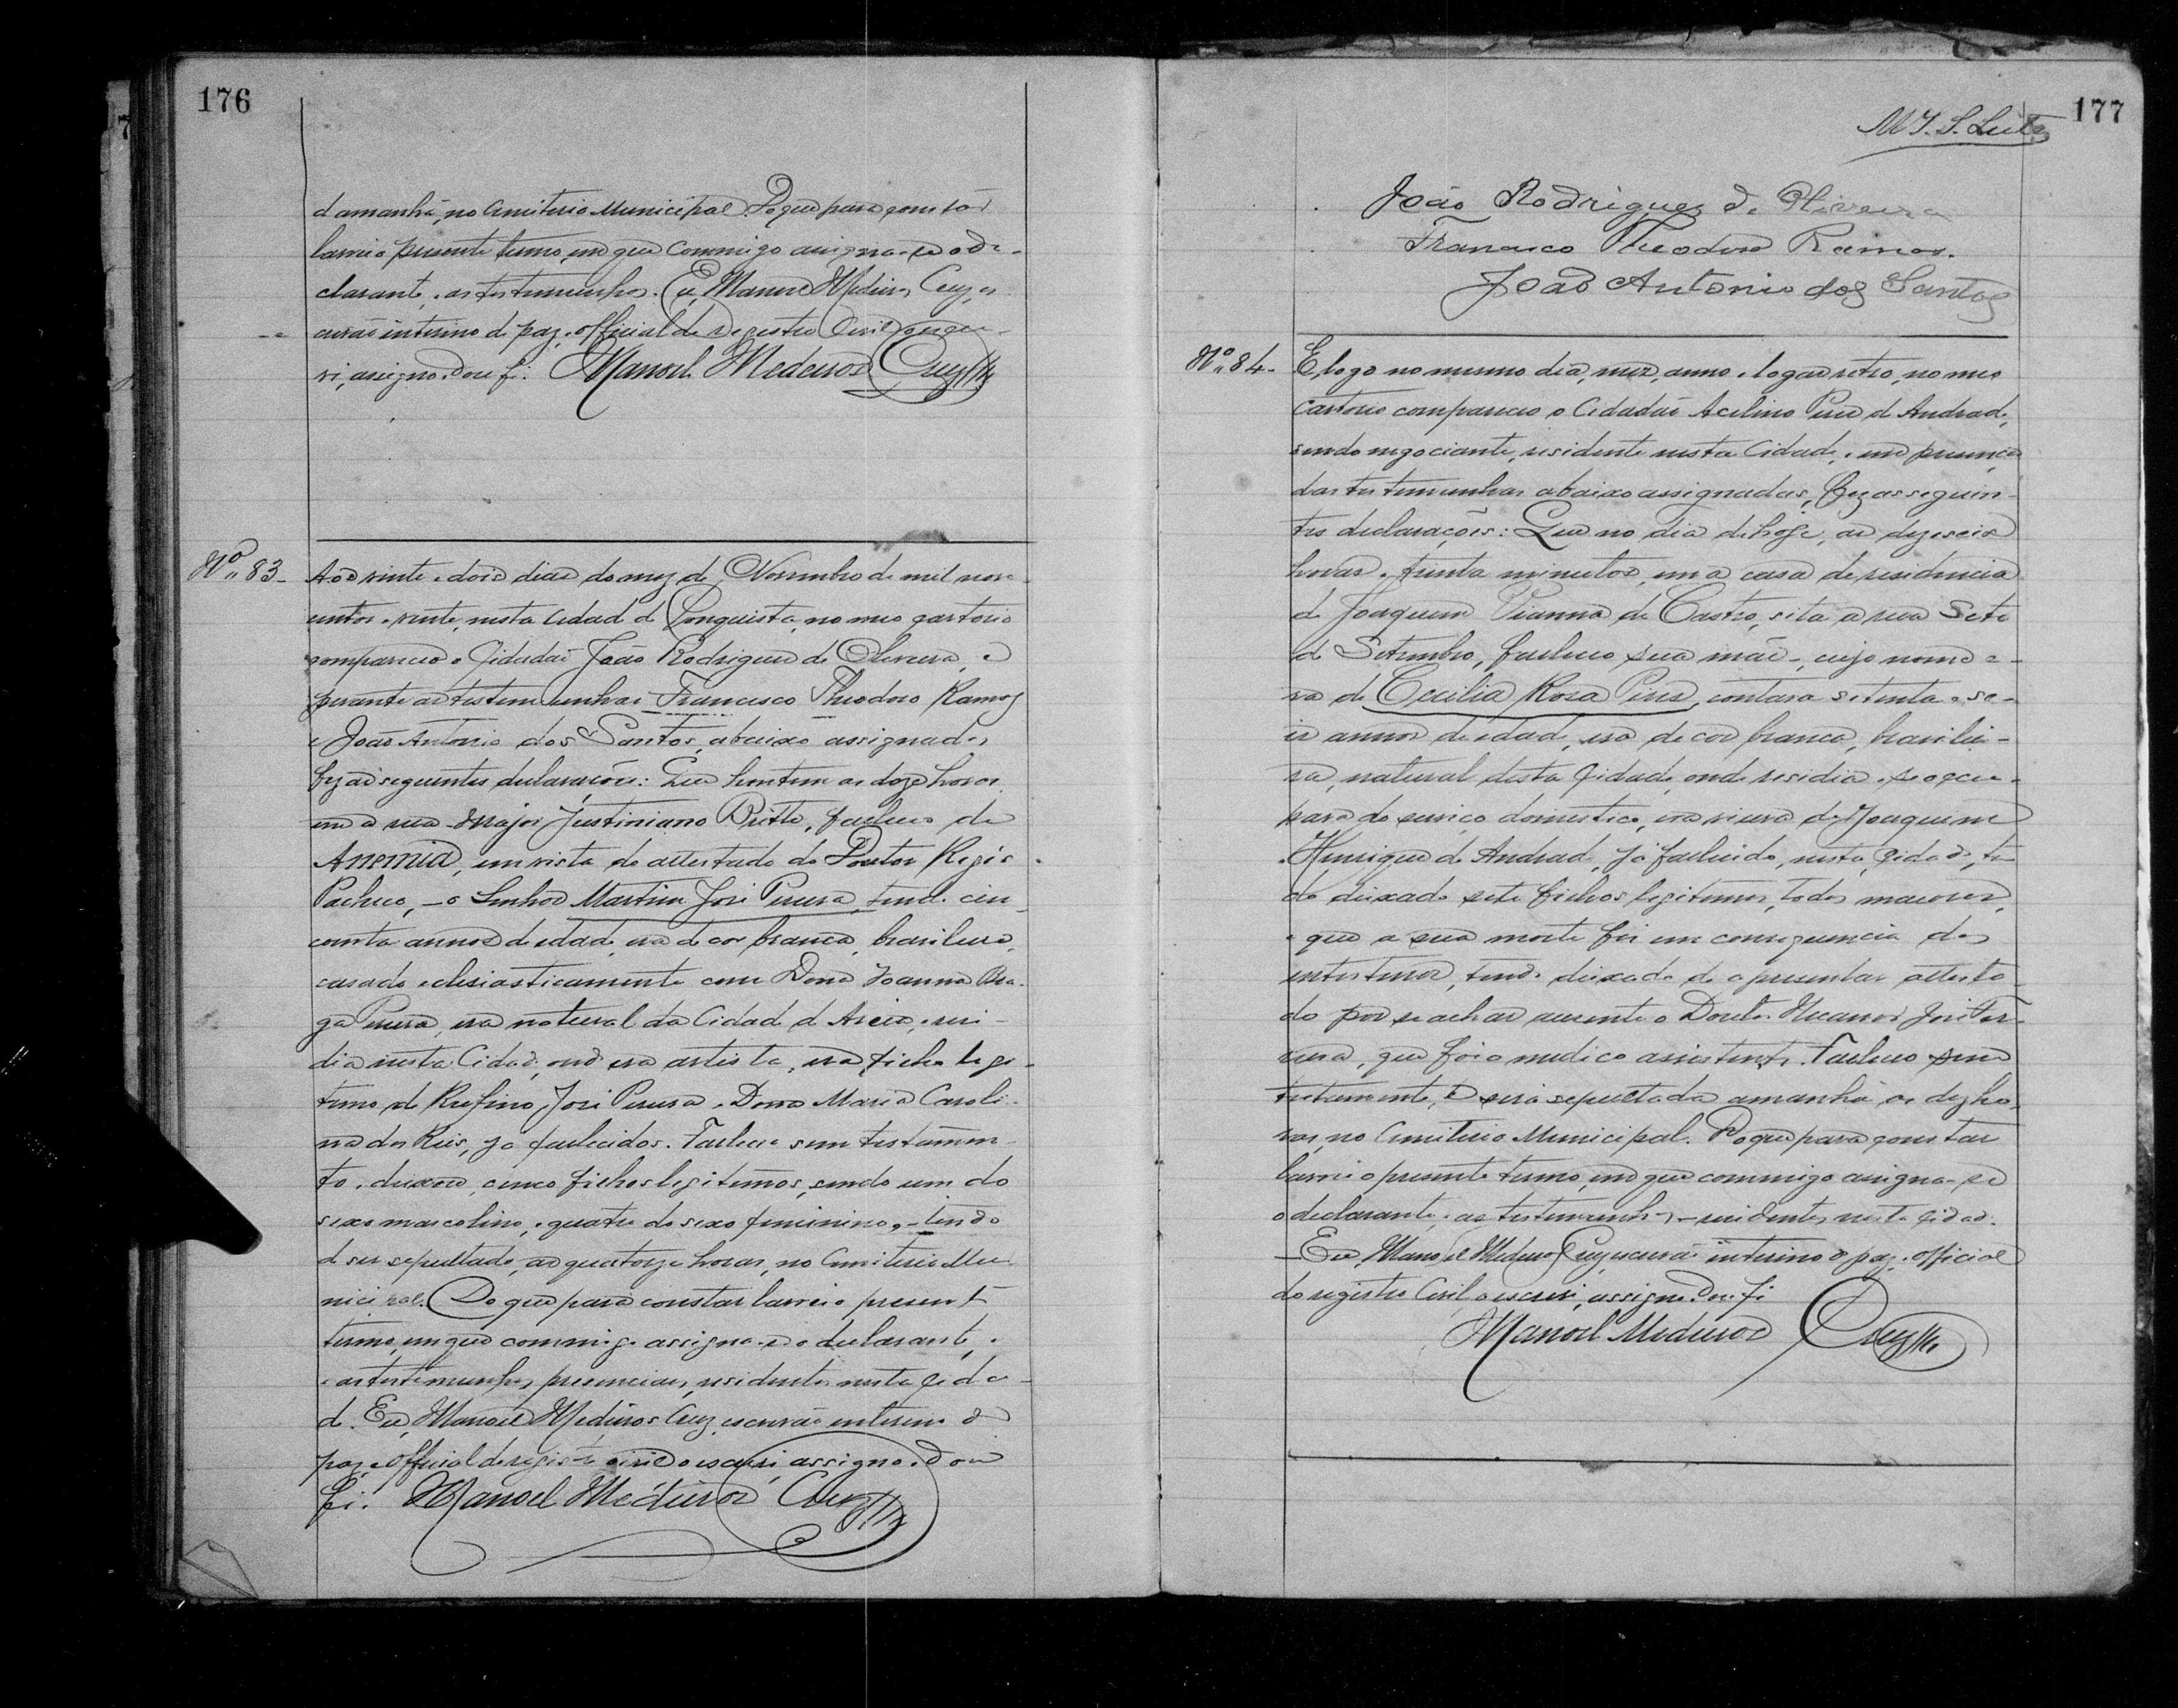 176
damanhã, no Cemiterio Municipal. Do que para constar
lavrei o presente termo, em que commigo assigna-se o de-
clarante, e as testemunhas. Eu, Manoel Medeiros Cruz, es
crivão interino de paz e official do registro Civil o escre-
vi, assigno. Dou fé. Manoel Medeiros Cruz
Nº 83 -
Aos vinte e dois dias do mez de Novembro de mil nove
centos e vinte, nesta Cidade de Conquista, no meu cartorio
compareceu o Cidadão João Rodrigues de Oliveira, e
perante as testemunhas Francisco Theodoro Ramos
e João Antonio dos Santos, abaixo assignados
fez as seguintes declarações: Que hontem as doze horas
em a rua Major Justiniano Britto, falleceu de
Anemia, em vista do attestado do Doutor Regis
Pacheco, - o Senhor Martim José Pereira, tendo cin-
coenta annos de edade, era de cor branca, brasileiro,
casado eclesiasticamente com Dona Joanna Bra-
ga Pereira, era natural da Cidade de Areia, e resi-
dia nesta Cidade, onde era artista, era filho legi-
timo de Rufino José Pereira e Dona Maria Caroli-
na dos Reis, já fallecidos. Falleceu sem testamen-
to, e deixou cinco filhos legitimos, sendo um do
sexo mascolino, e quatro do sexo feminino, - tendo
de ser sepultado, as quatorze horas, no Cemiterio Mu-
nicipal. Do que para constar lavrei o presente
termo, em que commigo assigna-se o declarante,
e as testemunhas presenciaes, residentes nesta cida-
de. Eu, Manoel Medeiros Cruz, escrivão interino de
paz, e official do registro civil o escrevi, assigno. Dou
fé. Manoel Medeiros Cruz
177
João Rodrigues de Oliveira
Francisco Theodoro Ramos.
João Antonio dos Santos
Nº 84 -
E, logo no mesmo dia, mez, anno e logar retro, no meu
cartorio compareceu o Cidadão Acelino Pires de Andrade,
sendo negociante, residente nesta Cidade, e em presença
das testemunhas abaixo assignadas, fez as seguin-
tes declarações: Que no dia de hoje, as dezeseis
horas e trinta minutos, em a casa de residencia
de Joaquim Vianna de Castro, sita a rua Sete
de Setembro, falleceu sua mãe -, cujo nome e-
ra de Cecilia Rosa Pires, contava setenta e se-
is annos de edade, era de cor branca, brasilei-
ra, natural desta Cidade, onde residia e se occu-
pava do serviço domestico, era viuva de Joaquim
Henrique de Andrade, já fallecido, nesta Cidade, ten
do deixado sete filhos legitimos, todos maiores,
e que a sua morte foi em consequencia dos
intestinos, tendo deixado de apresentar attesta-
do por se achar ausente o Doutor Nicanor José Fer-
reira, que foi o medico assistente. Falleceu sem
testamento, e será sepultada amanhã as dez ho-
ras, no Cemiterio Municipal. Do que para constar
lavrei o presente termo, em que commigo assigna-se
o declarante e as testemunhas - residentes nesta Cidade.
- Eu, Manoel Medeiros Cruz, escrivão interino de paz e official
do registro Civil o escrevi, assigno. Dou fé
Manoel Medeiros Cruz